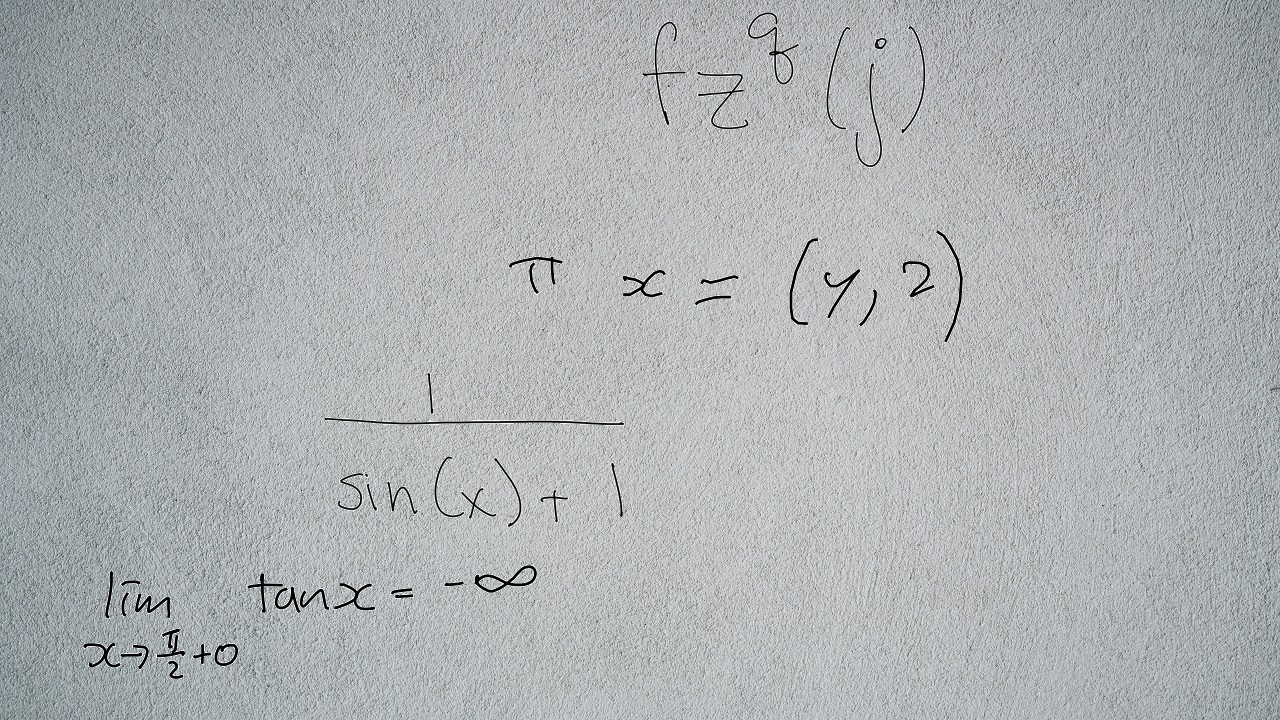 fz^q(j)
π x = (y, 2)
1/(sin(x) + 1)
lim_{x→π/2+0} tan x = -∞